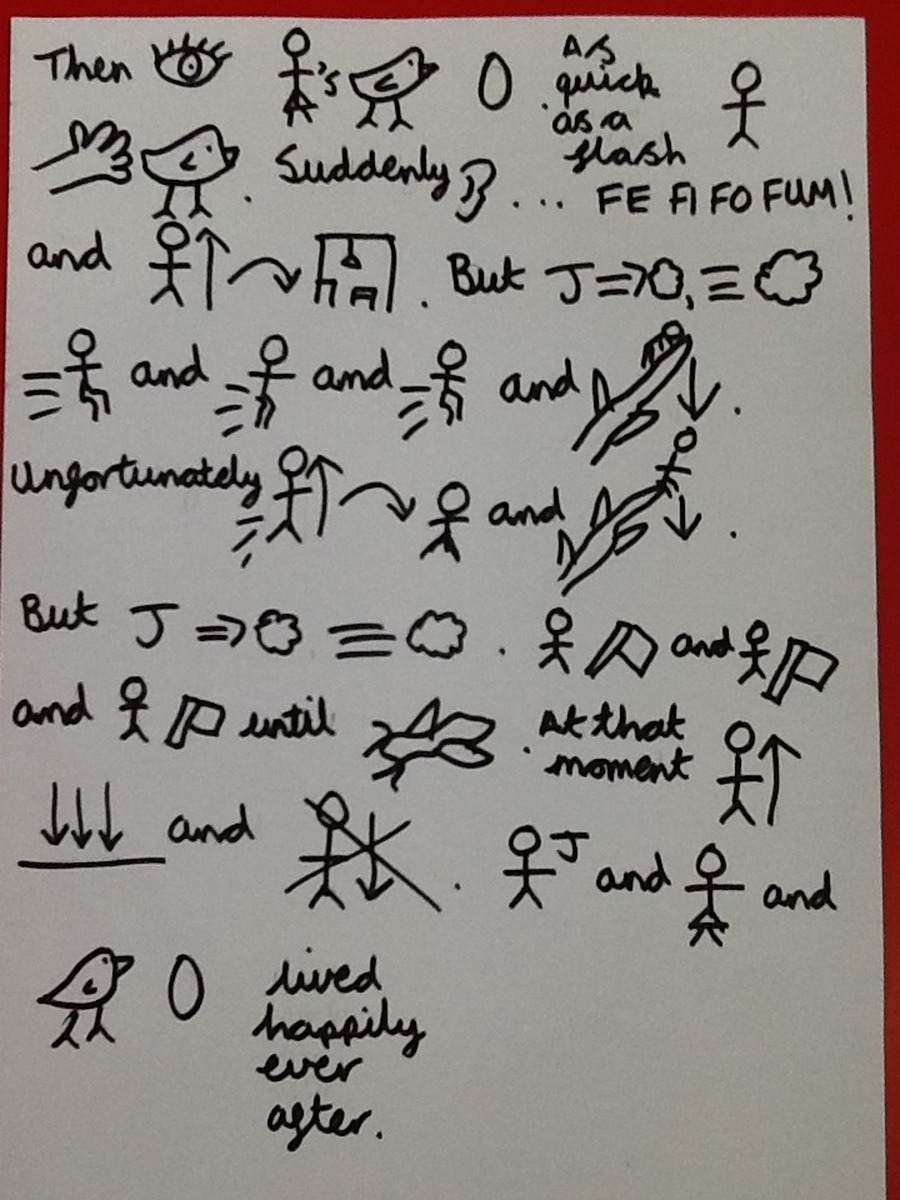 Then 's As quick as a flash
. Suddenly ... FE FI FO FUM!
and . But J ,
and and and .
Unfortunately and .
But J . and
and until . At that moment
and . J and and
lived happily ever after.